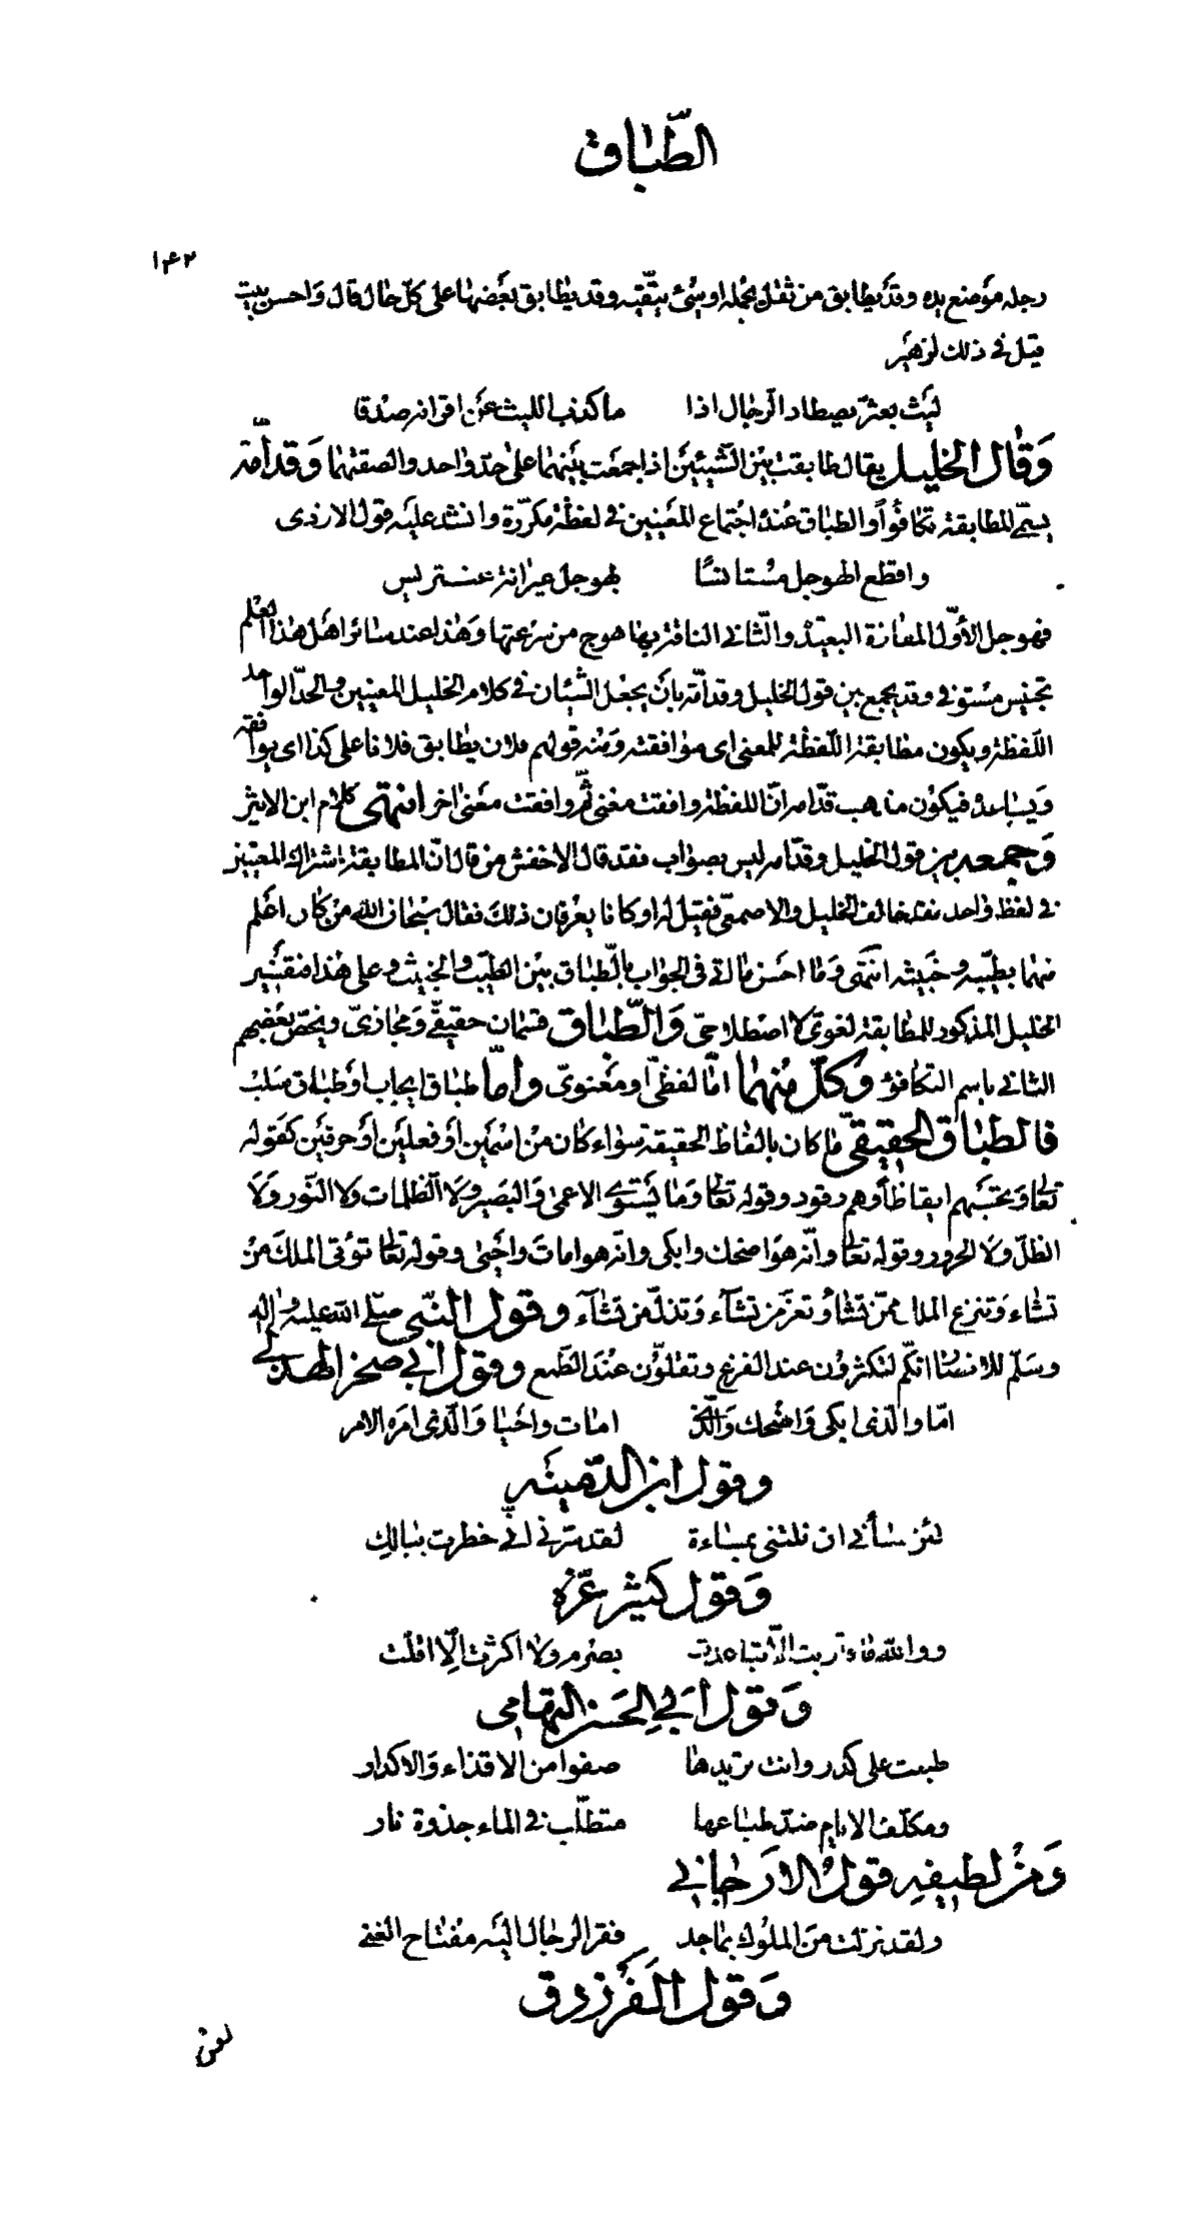 الطّباق
١٤٢
رجله موضع يده وقد يطابق من ثقل يحمله او شئ يتّقيه وقد يطابق بعضها على كلّ حال قال واحسن بيت
قيل فى ذلك لزهير
ليث بعثّر يصطاد الرّجال اذا ما كذب الليث عن اقرانه صدقا
وقال الخليل يقال طابقت بين الشّيئين اذا جمعت بينهما على حدّ واحد والصقتهما وقدامة
يسمّى المطابقة تكافؤاً والطباق عنده اجتماع المعنيين فى لفظة مكرّرة وانشد عليه قول الاودى
واقطع الهوجل مستانسًا بهوجل عيرانة عنتريس
فهوجل الأوّل المفازة البعيدة والثّانى الناقة بها هوج من سرعتها وهذا عند سائر اهل هذا العلم
تجنيس مستوفى وقد يجمع بين قول الخليل وقدامة بان يجعل الشيئان فى كلام الخليل المعنيين والحدّ الواحد
اللّفظة ويكون مطابقة اللّفظة للمعنى اى موافقته ومنه قولهم فلان يطابق فلانا على كذا اى يوافقه
ويساعده فيكون مذهب قدامه انّ اللفظة وافقت معنى ثمّ وافقت معنى اخر انتهى كلام ابن الاثير
وجمعه بين قول الخليل وقدامه ليس بصواب فقد قال الاخفش من قال انّ المطابقة اشتراك المعنيين
فى لفظ واحد فقد خالف الخليل والاصمعى فقيل له او كانا يعرفان ذلك فقال سبحان الله من كان اعلم
منهما بطيّبه وخبيثه انتهى وما احسن ما اتى فى الجواب بالطّباق بين الطيّب والخبيث وعلى هذا فتفسير
الخليل المذكور للمطابقة لغوىّ لا اصطلاحىّ والطّباق قسمان حقيقىّ ومجازىّ ويخصّ بعضهم
الثانى باسم التكافؤ وكلّ منهما امّا لفظىّ او معنوىّ وامّا طباق ايجاب او طباق سلب
فالطباق الحقيقىّ ما كان بالفاظ الحقيقة سواء كان من اسمين أو فعلين أو حرفين كقوله
تعالى وتحسبهم ايقاظاً وهم رقود وقوله تعالى وما يستوى الاعمى والبصير ولا الظّلمات ولا النّور ولا
الظلّ ولا الحرور وقوله تعالى وانّه هو اضحك وابكى وانّه هو امات واحيى وقوله تعالى تؤتى الملك من
تشاء وتنزع الملك ممّن تشاء وتعزّ من تشاء وتذلّ من تشاء وقول النّبى صلّى الله عليه وآله
وسلّم للانصار انّكم لتكثرون عند الفزع وتقلّون عند الطّمع وقول ابى صخر الهذلى
امّا والّذى ابكى واضحك والّذى امات واحيا والّذى امره الامر
وقول ابن الدّمينه
لئن سائنى ان نلتنى بمساءة لقد سرّنى انّى خطرت ببالك
وقول كثير عزّة
ووالله ما قاربت الّا تباعدت بصرم ولا اكثرت الّا اقلّت
وقول ابى الحسن التهامى
طبعت على كدر وانت تريدها صفوا من الاقذاء والاكدار
ومكلّف الايام ضدّ طباعها متطلّب فى الماء جذوة نار
ومن لطيفه قول الارجانى
ولقد نزلت من الملوك بماجد فقر الرجال اليه مفتاح الغنى
وقول الفرزدق
لعن